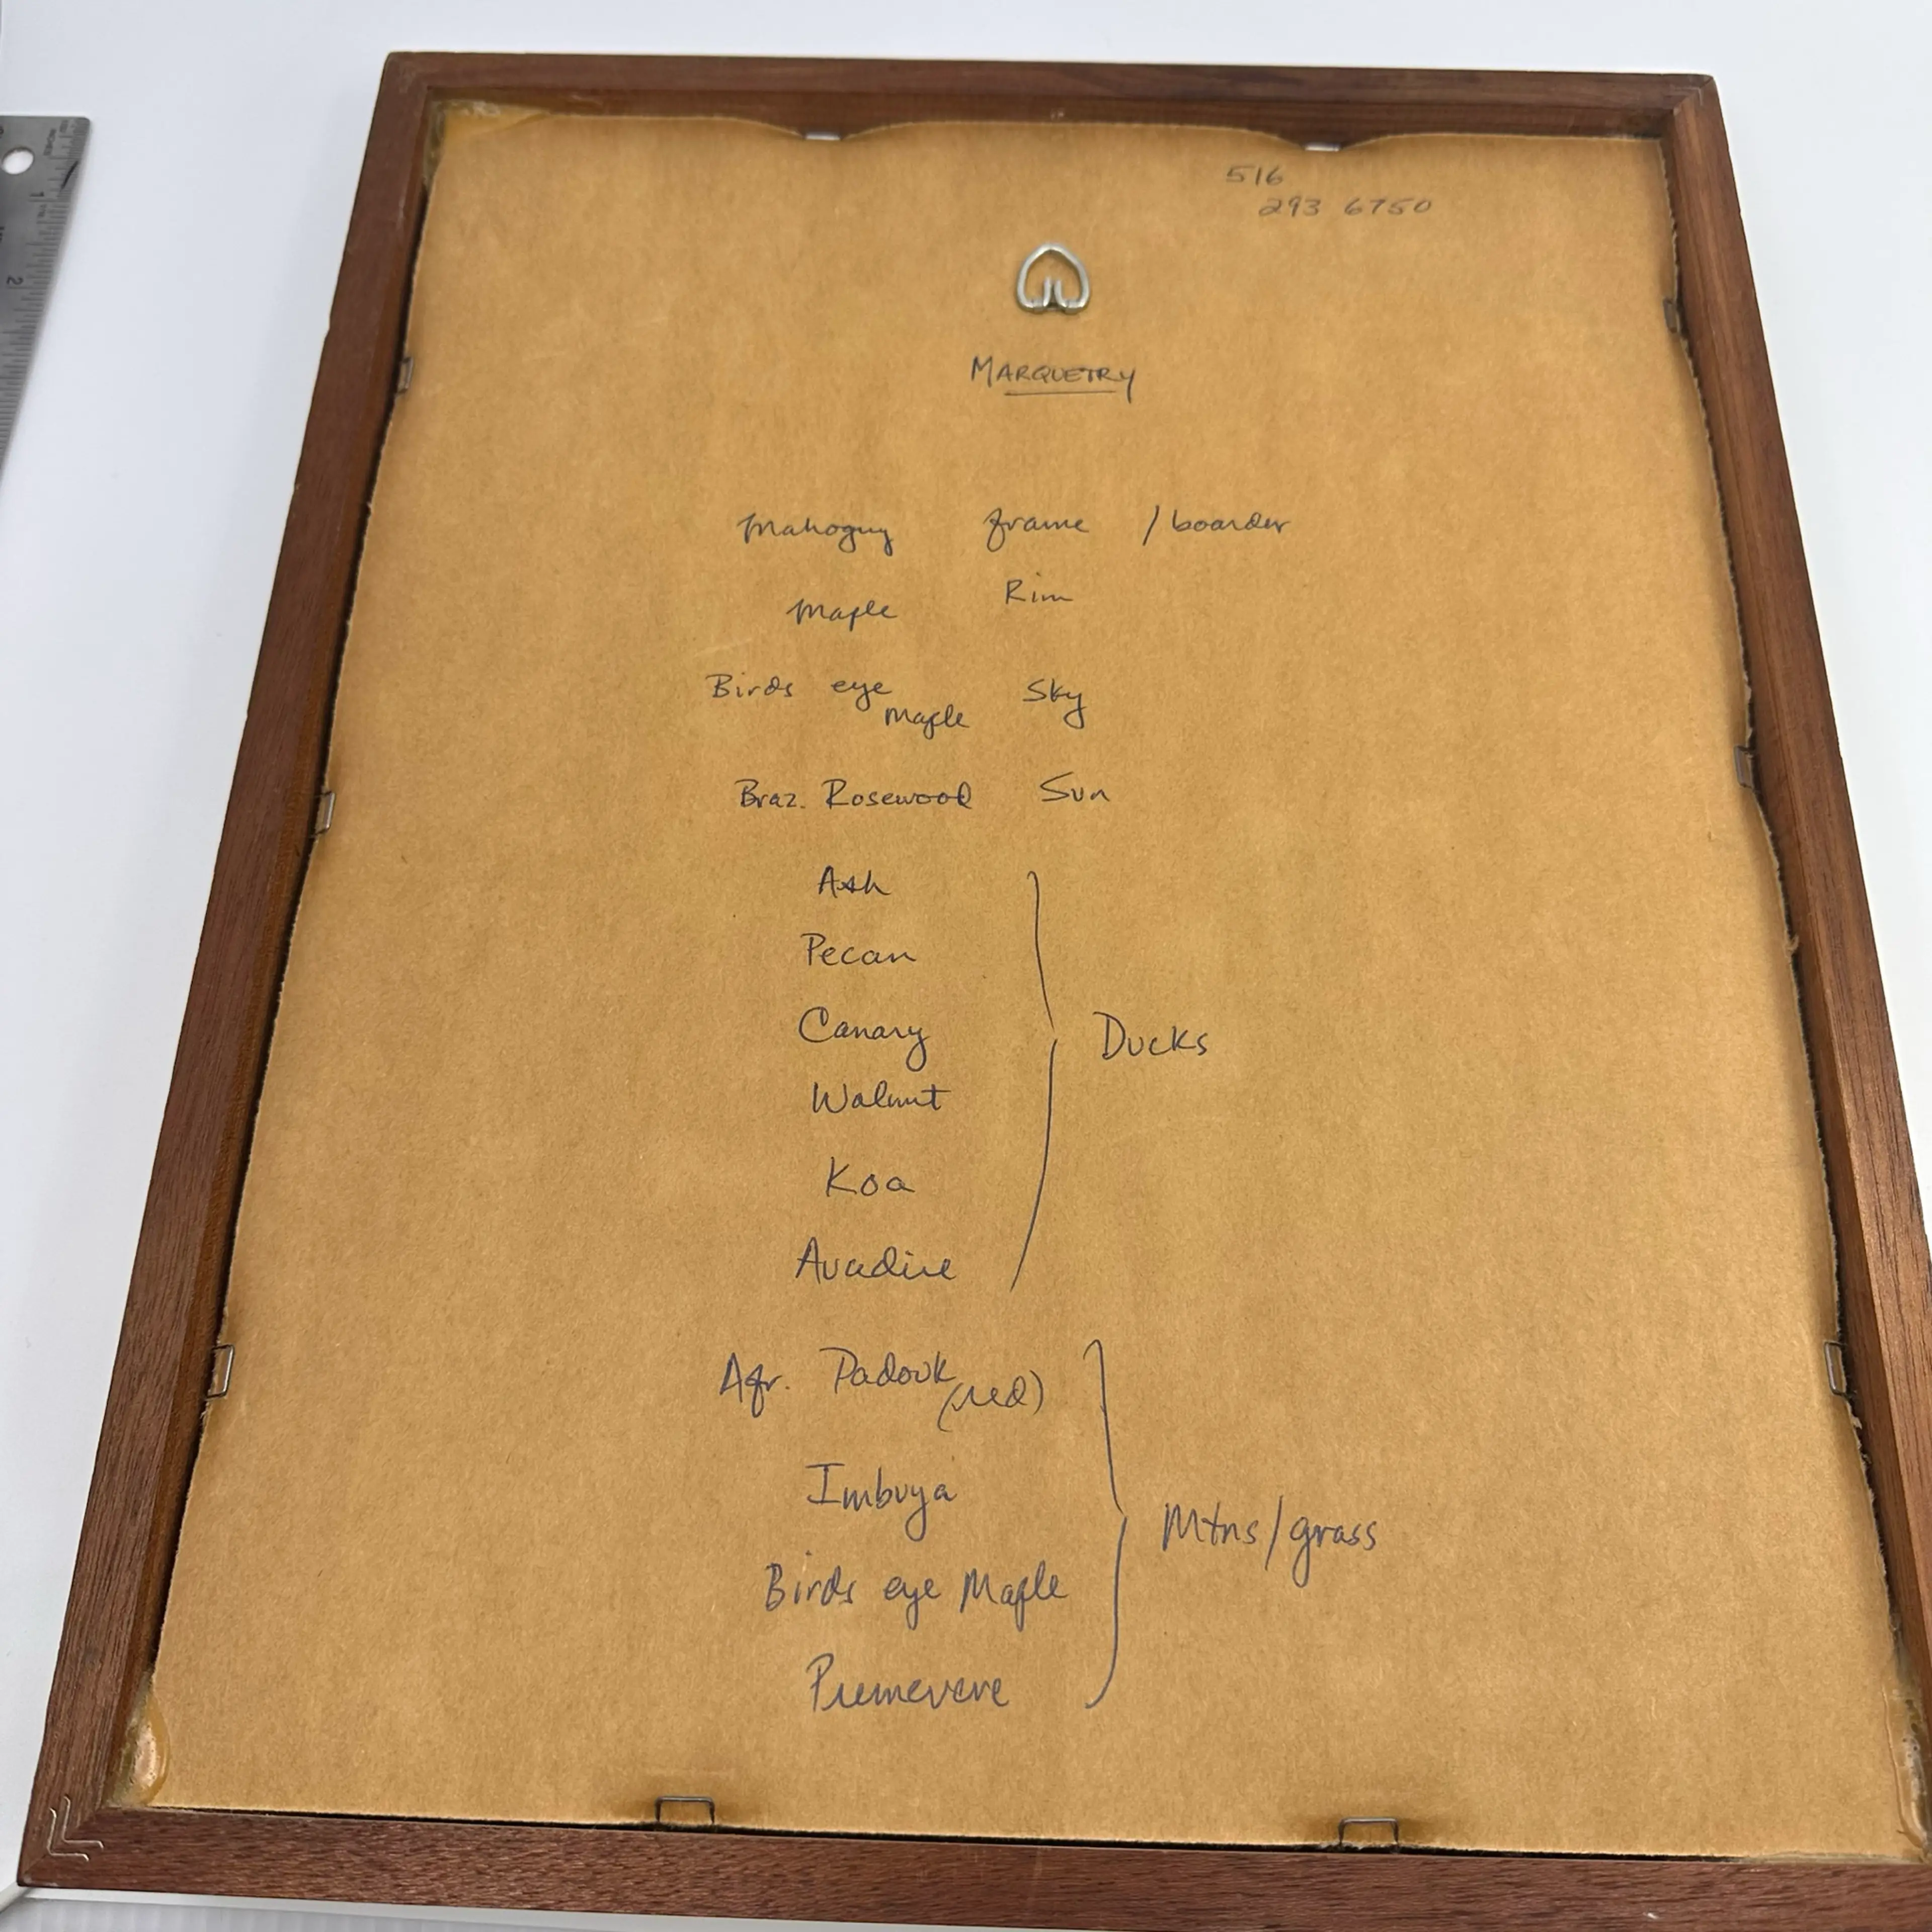 516
293 6750
MARQUETRY
Mahogny frame / boarder
Maple Rim
Birds eye Maple Sky
Braz. Rosewood Sun
Ash
Pecan
Canary
Walnut
Koa
Avadire
Ducks
Afr. Padouk (red)
Imbuya
Birds eye Maple
Premevere
Mtns/grass